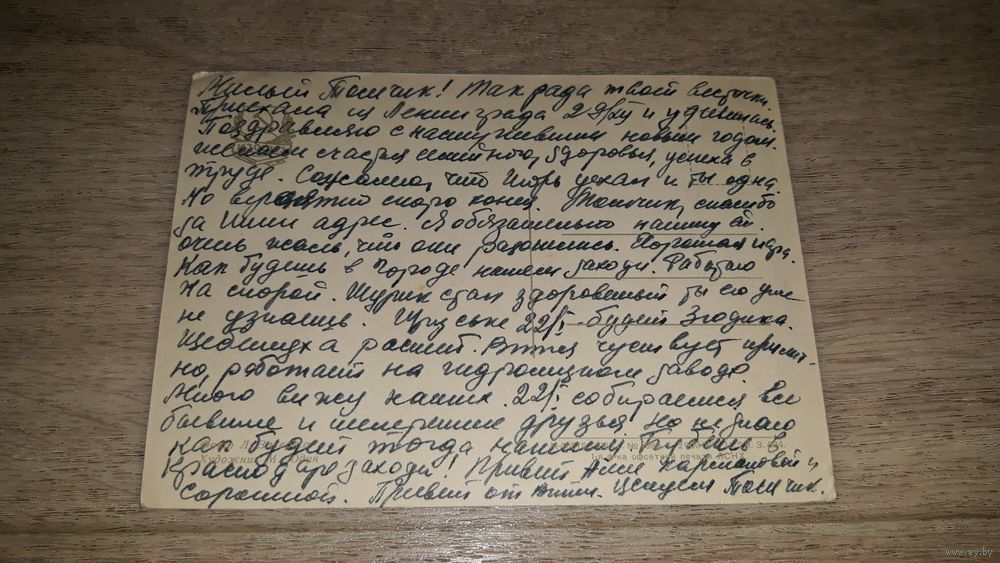 Милый Томчик! Так рада твоей весточки.
Приехала из Ленинграда и удивилась.
Поздравляю с наступившим новым годом.
желаем счастья семейного, здоровья, успеха в
труде. Сожалею, что Игорь уехал и ты одна.
Но вероятно скоро конец. Томчик, спасибо
за Иши адрес. Я обязательно напишу ей.
очень жаль, что они разошлись. Хорошая пара.
Как будешь в городе нашем заходи. Работаю
на скорой. Шурик стал здоровенный ты его уже
не узнаешь. 22/I будет 3 годика.
растет. Витя чувствует прилич-
но, работает на гидролизном заводе.
Много вижу наших. 22/I собираемся все
бывшие и теперешние друзья. Но не знаю
как будет тогда напишу. Будешь в
Краснодаре заходи! Привет Ане Кармановой и
Сорокиной. Привет от Вити. Целуем Томчик.
Художник
офсетной печати ЛСНХ
www.ay.by